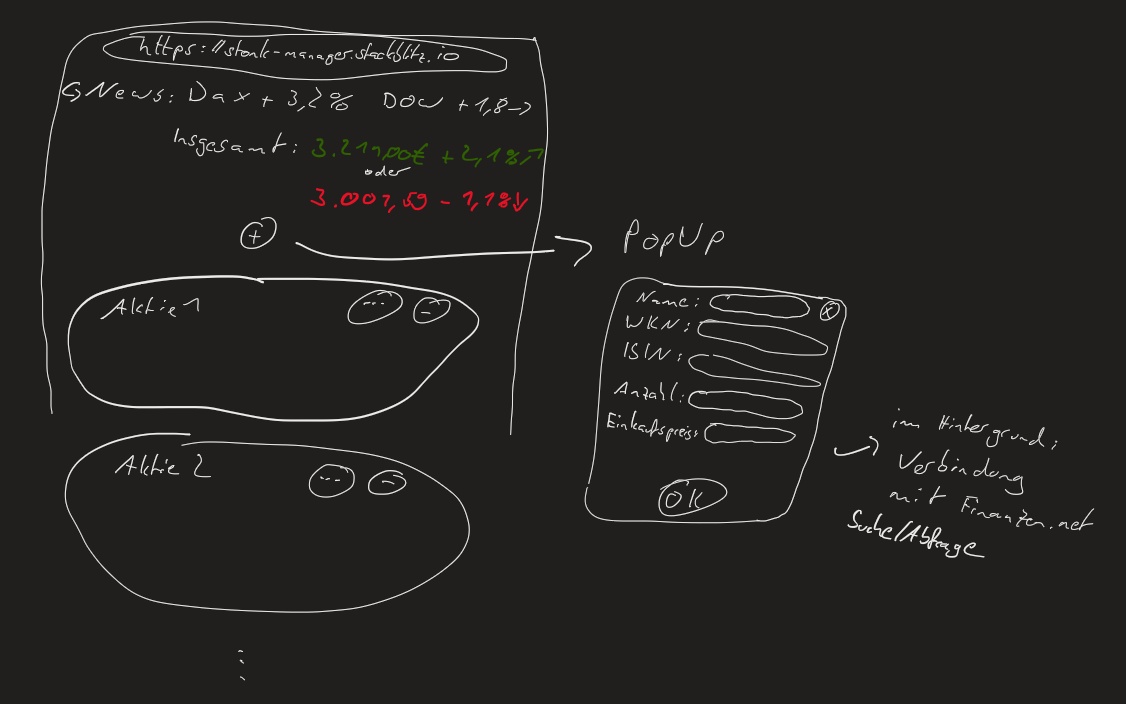 https://stonk-manager.stackblitz.io
News: Dax + 3,2% DOW +1,8→
Insgesamt: 3.211,00€ +2,1%↗
oder
3.001,59 - 1,1%↓
+
PopUp
Aktie 1 ... -
Name: x
WKN:
ISIN:
Anzahl:
Einkaufspreis:
OK
im Hintergrund:
Verbindung
mit Finanzen.net
Suche/Abfrage
Aktie 2 ... -
⋮